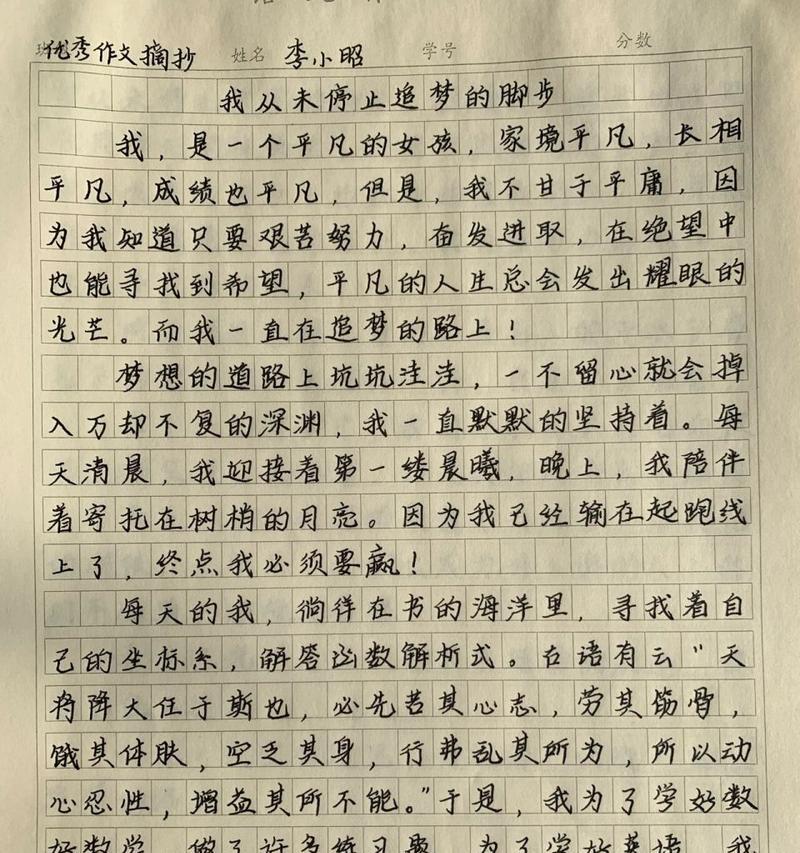 优秀作文摘抄 姓名 李小昭 学号 分数
我从未停止追梦的脚步
我，是一个平凡的女孩，家境平凡，长相
平凡，成绩也平凡，但是，我不甘于平庸，因
为我知道只要艰苦努力，奋发进取，在绝望中
也能寻找到希望，平凡的人生总会发出耀眼的
光芒。而我一直在追梦的路上！
梦想的道路上坑坑洼洼，一不留心就会掉
入万却不复的深渊，我一直默默的坚持着。每
天清晨，我迎接着第一缕晨曦，晚上，我陪伴
着寄托在树梢的月亮。因为我已经输在起跑线
上了，终点我必须要赢！
每天的我，徜徉在书的海洋里，寻找着自
己的坐标系，解答函数解析式。古语有云"天
将降大任于斯也，必先苦其心志，劳其筋骨，
饿其体肤，空乏其身，行弗乱其所为，所以动
心忍性，增益其所不能。"于是，我为了学好数
好数学，做了许多练习题，为了学好英语，我